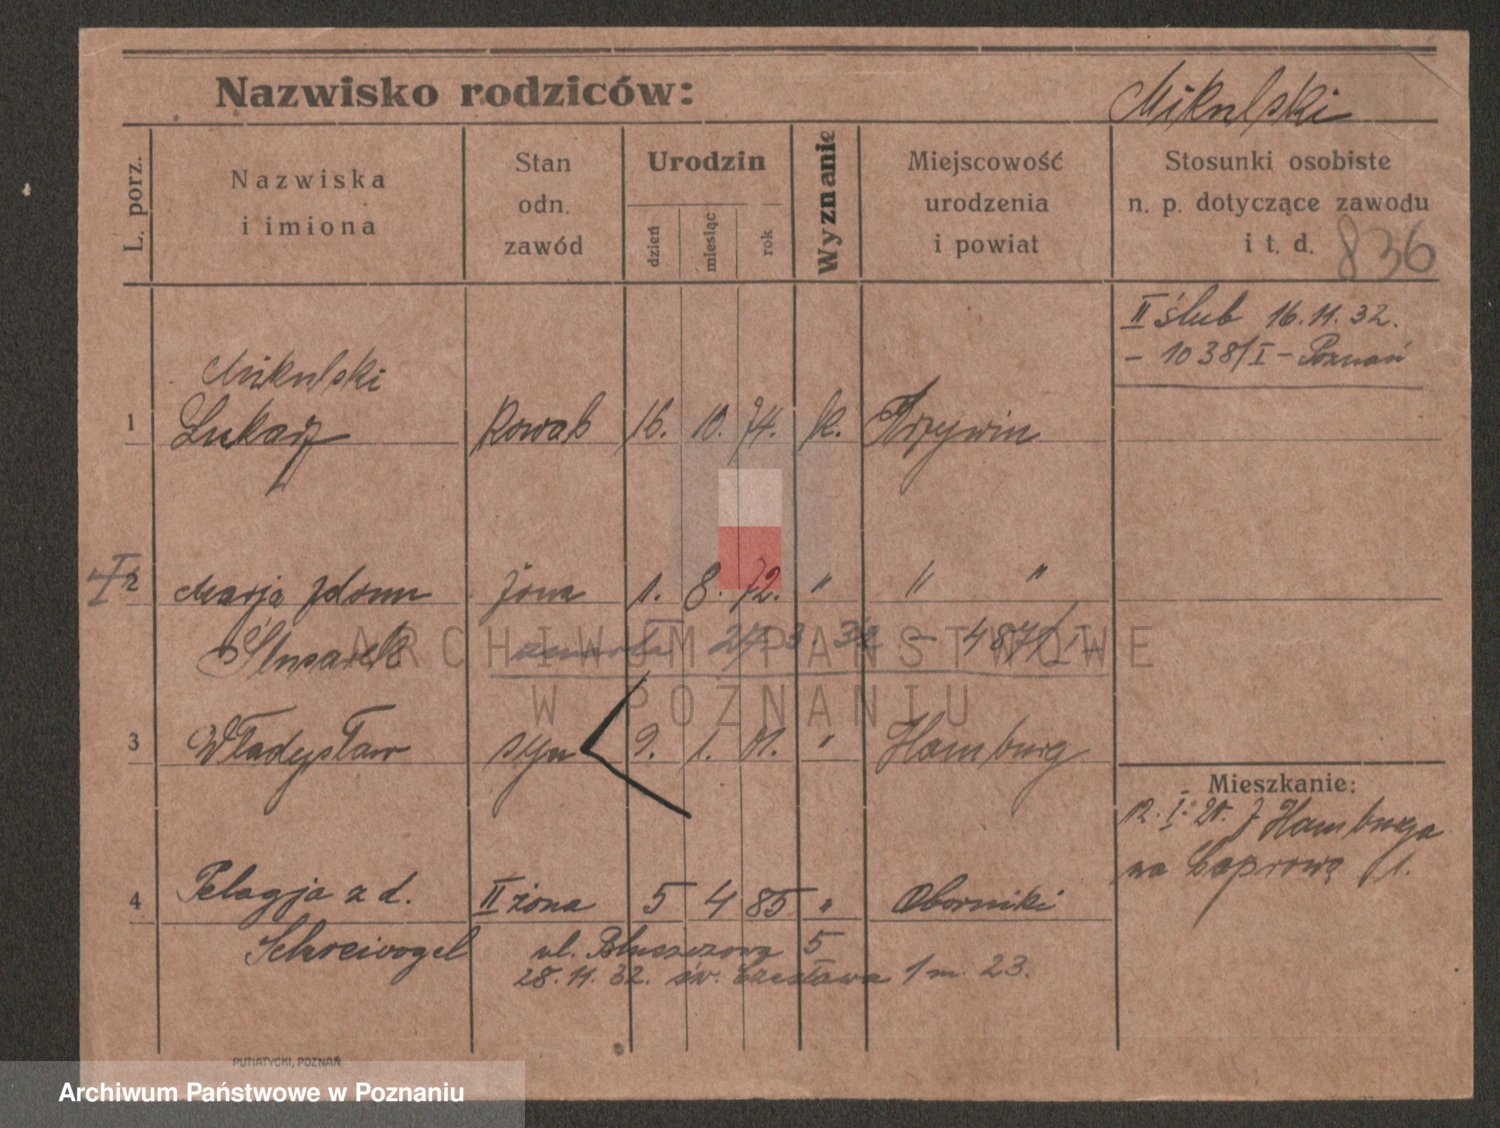 Nazwisko rodziców: Mikulski
L. porz.
Nazwiska
i imiona
Stan
odn.
zawód
Urodzin
dzień
miesiąc
rok
Wyznanie
Miejscowość
urodzenia
i powiat
Stosunki osobiste
n. p. dotyczące zawodu
i t. d.
836
II ślub 16.11.32.
- 1038/I - Poznań
Mikulski
1 Łukasz Kowal 16. 10. 74. k. Krzywin
I 2 Marja żona 1. 8. 72. " " "
Ślusarek zmarła 27 3 32 - 487/I -
3 Władysław syn 9. 1. 01. " Hamburg
Mieszkanie:
12. I. 20. z Hamburga
na 1.
4 Pelagja z d. II żona 5 4 85 " Oborniki
Schreivogel ul. Bluszczowa 5
28.11.32. św. Czesława 1 m 23.
PUTIATYCKI, POZNAŃ
ARCHIWUM PAŃSTWOWE
W POZNANIU
Archiwum Państwowe w Poznaniu